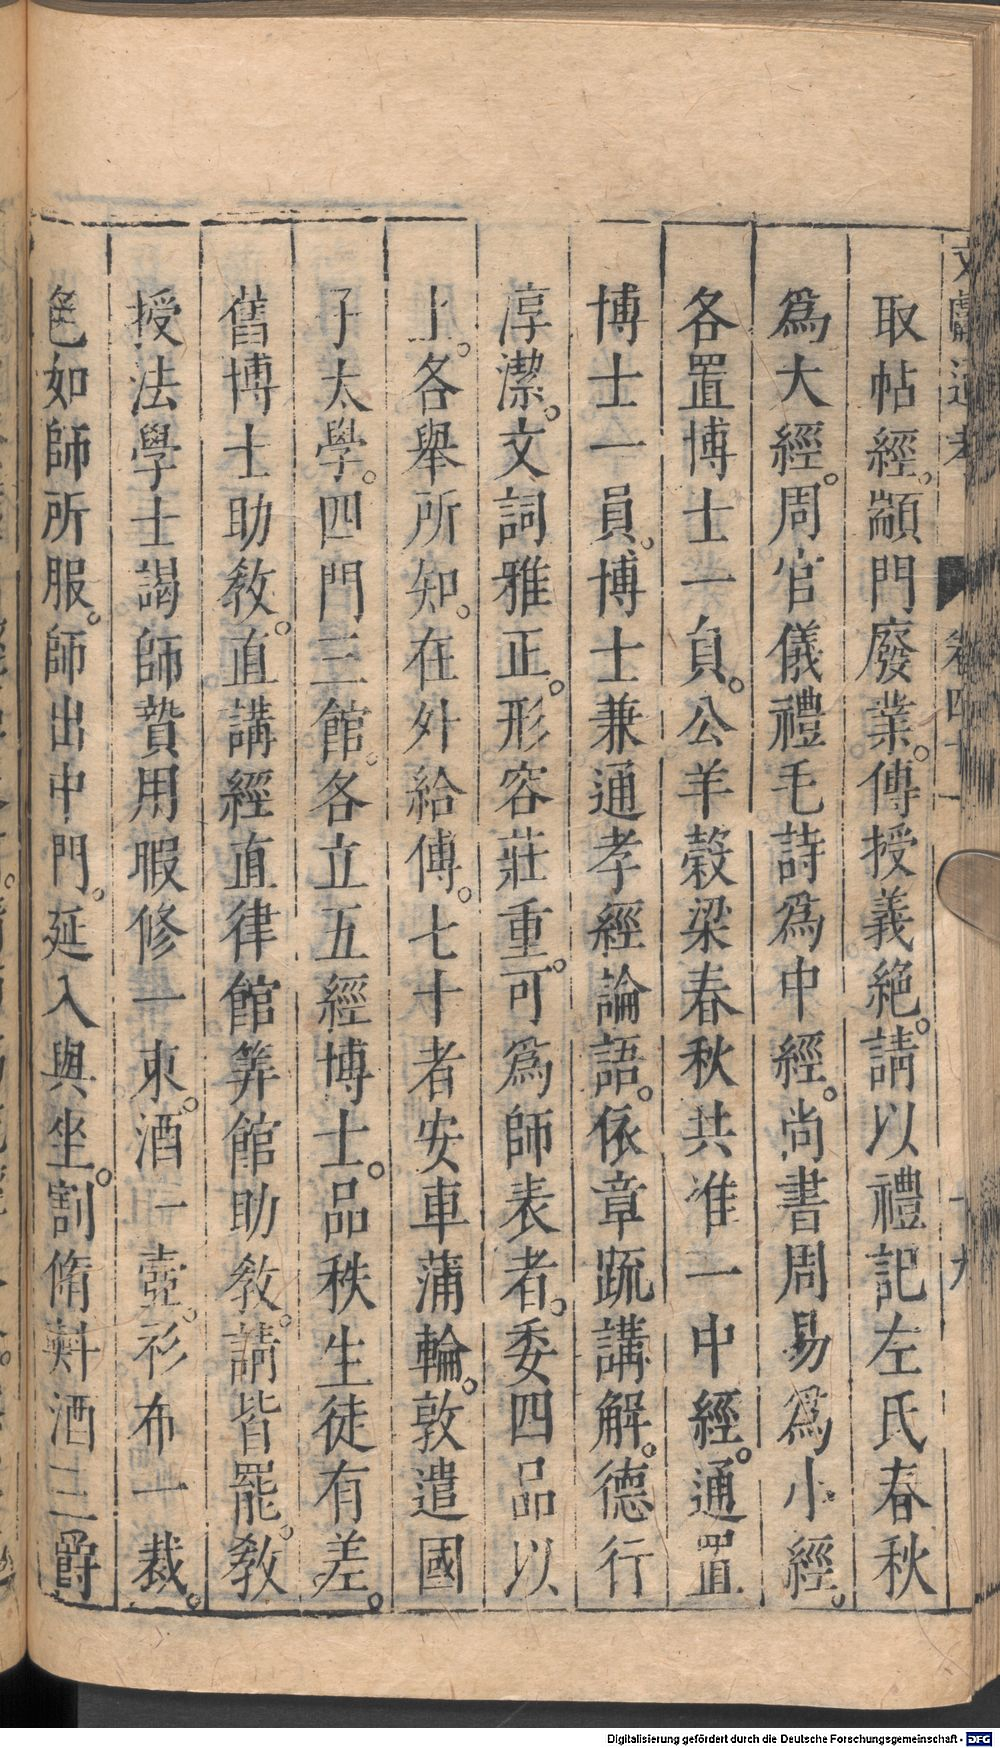 文獻通考 卷四十一 十九
取帖經。顓門廢業。傳授義絶。請以禮記左氏春秋
爲大經。周官儀禮毛詩爲中經。尚書周易爲小經。
各置博士一員。公羊穀梁春秋共准一中經。通置
博士一員。博士兼通孝經論語。依章疏講解。德行
淳潔。文詞雅正。形容莊重。可爲師表者。委四品以
上。各舉所知。在外給傳。七十者安車蒲輪。敦遣國
子太學。四門三館。各立五經博士。品秩生徒有差。
舊博士助敎。直講經直律館筭館助敎。請皆罷。敎
授法學士謁師贄用暇修一束。酒一壺。衫布一裁。
色如師所服。師出中門。延入與坐。割脩㪺酒三爵
Digitalisierung gefördert durch die Deutsche Forschungsgemeinschaft - DFG